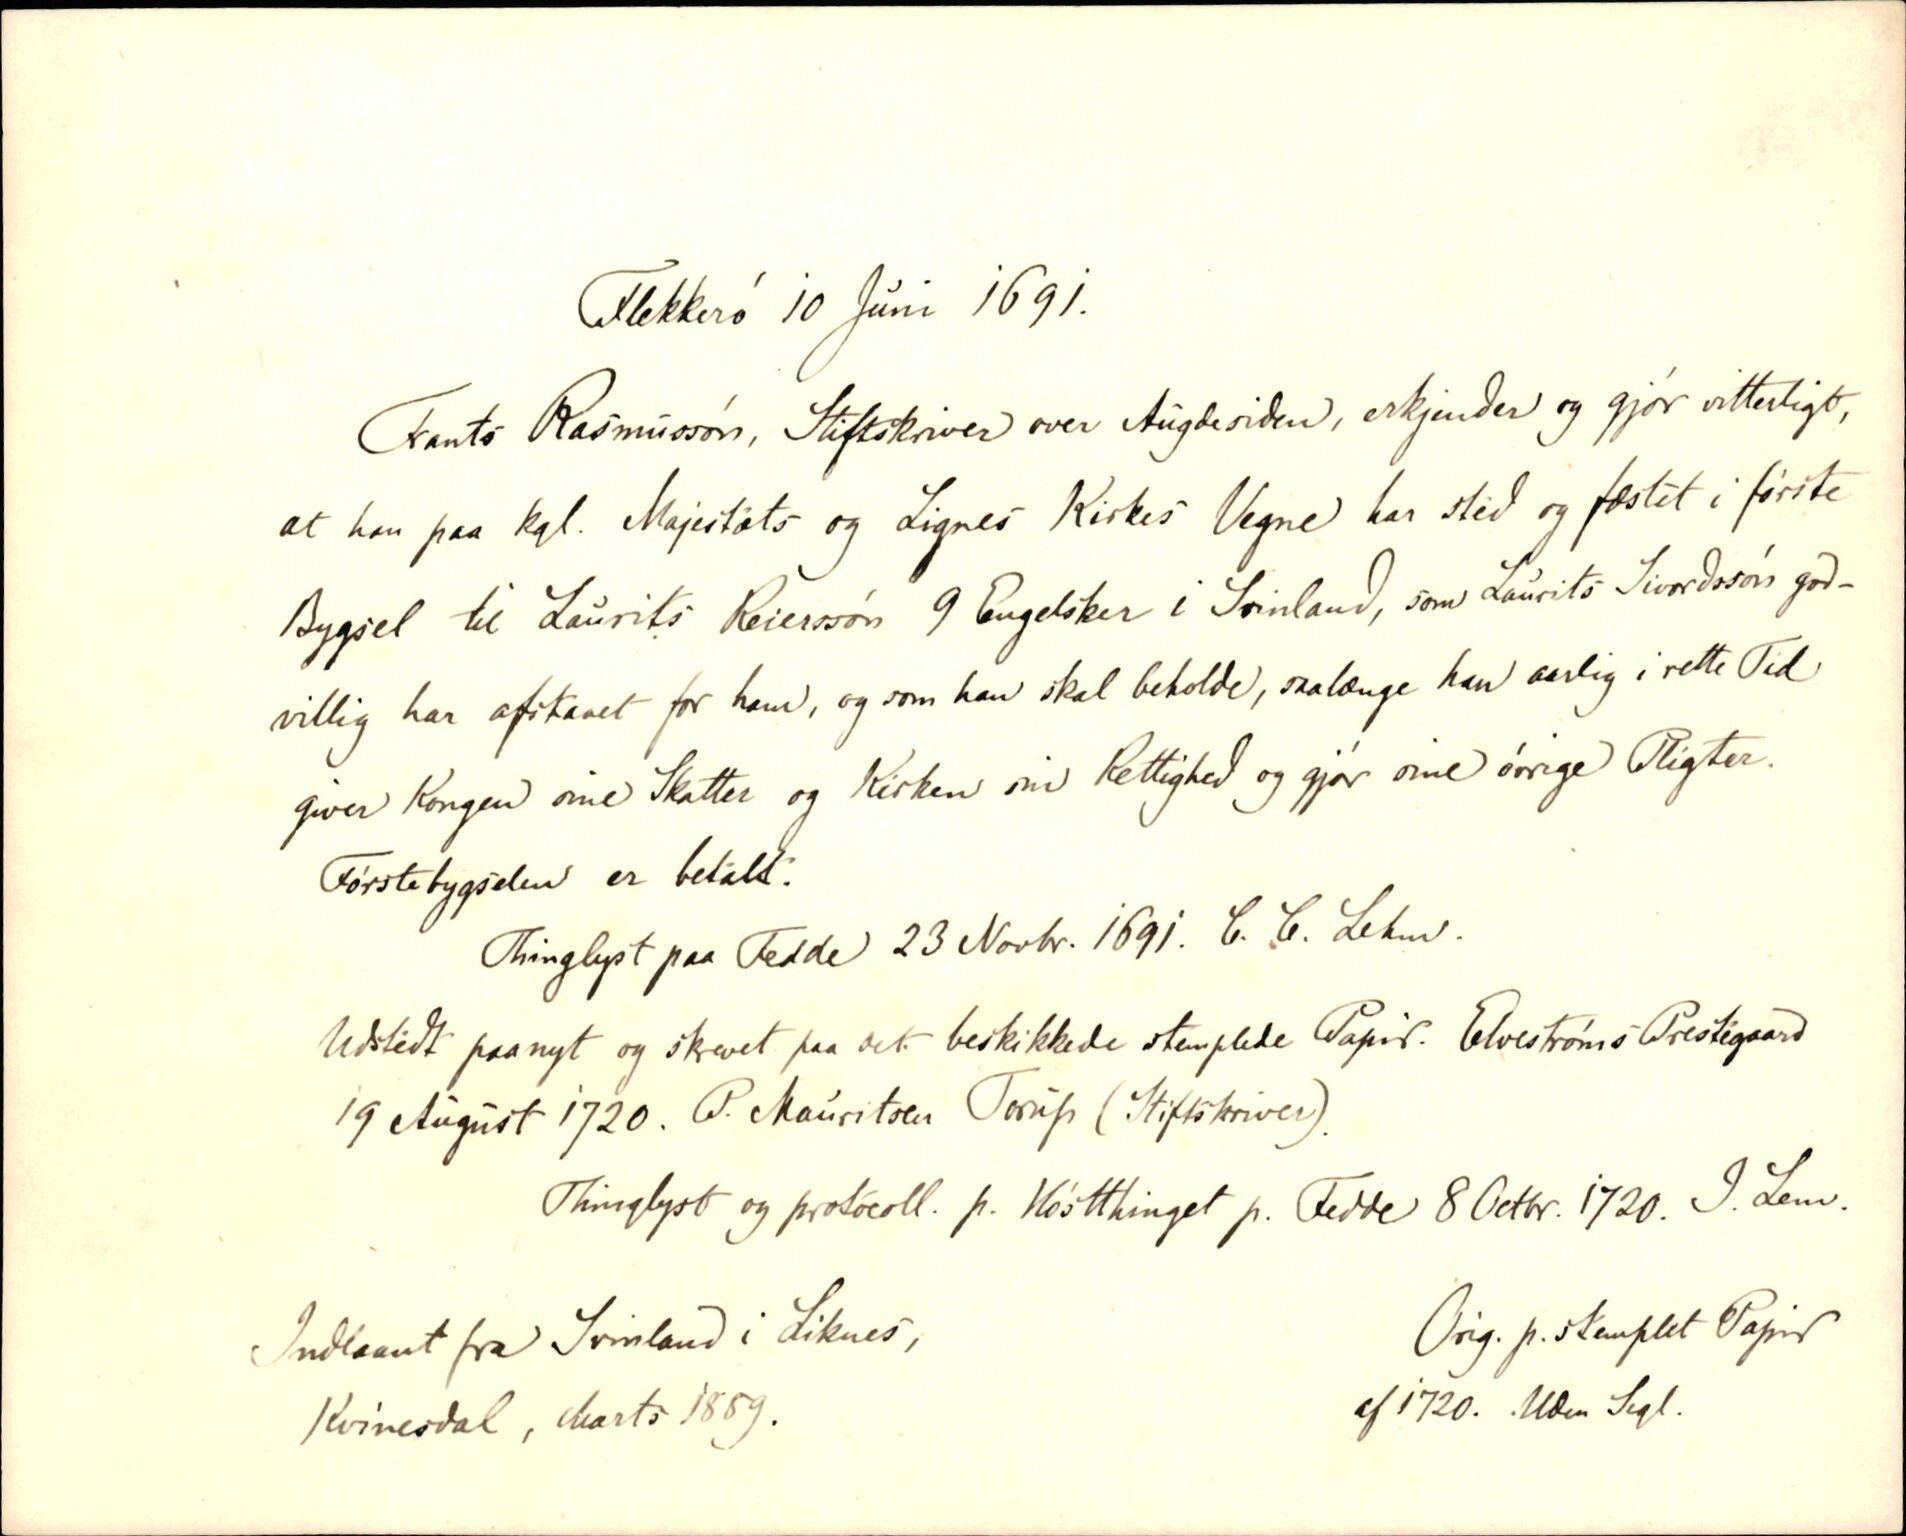 Flekkeró 10 Juni 1691.
Frants Rasmussón, Stiftskriver over Augdesiden, erkjender og gjór vitterligt,
at han paa kgl. Majestæts og Lignes Kirkes Vegne har sted og fæstet i fórste
Bygsel til Laurits Reierssón 9 Engelsker i Svinland, som Laurits Sivordssón god-
villig har afstaaet for ham, og som han skal beholde, saalænge han aarlig i rette Tid
giver Kongen sine Skatter og Kirken sin Rettighed og gjór sine óvrige Pligter.
Fórstebygselen er betalt.
Thinglyst paa Fedde 23 Novbr. 1691. C. C. Lehm.
Udstedt paanyt og skrevet paa det beskikkede stemplede Papir. Elvestróms Prestegaard
19 August 1720. P. Mauritsen Torup (Stiftskriver).
Thinglyst og protocoll. p. Hóstthinget p. Fedde 8 Octbr. 1720. J. Lem.
Indlaant fra Svinland i Liknes,
Kvinesdal, Marts 1889.
Orig. p. stemplet Papir
af 1720. Uden Segl.